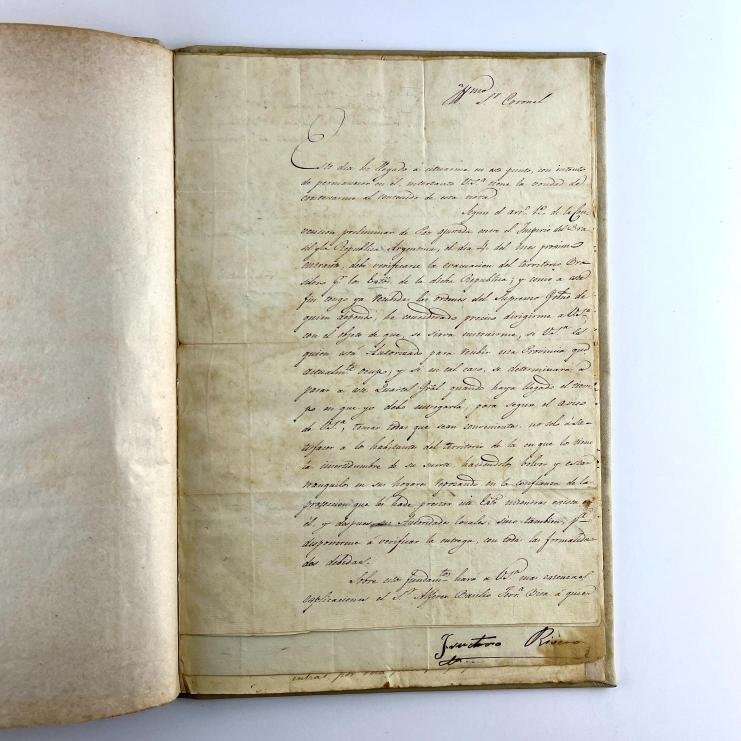 Yllmo Sr Coronel
Este dia he llegado à situarme en este punto, con intento
de permanecer en él, interin Vs.a tiene la bondad de
contestarme al contenido de esta nota.
Segun el arto. 1o. de la Con-
vencion preliminar de Paz ajustada entre el Imperio del Bra-
sil y la Republica Argentina, el dia 4 del mes proximo
debe verificarse la evacuacion del territorio Bra-
silero pr. las de la dicha Republica; y como a este
fin tengo ya recibidas las ordenes del Supremo Gobno. de
quien dependo, he considerado preciso dirigirme a Vs.a
con el objeto de que, se sirva instruirme, si Vs.a es
quien está autorizado para recibir esta Provincia que
actualmte. ocupo; y si en tal caso, se determinará a
pasar a este Quartel Gral. quando haya llegado el tiem-
po en que yo debo entregarla, para segun el aviso
de Vs.a, tomar todas que sean convenientes no solo à sa-
tisfacer a los habitantes del territorio de la en que los tiene
la incertidumbre de su suerte, haciendolos bolver y estar
tranquilos en sus hogares reposando en la confianza de la
proteccion que les hade prestar este Exto. mientras exista en
él, y despues sus Autoridades locales; sino tambien, pa.
disponerme à verificar la entrega, con todas las formalida-
des debidas.
Sobre estos fundamtos. hará a Vs.a mas extensas
explicaciones el Sr. Alferez Basilio Ferna. à quien
Fructuoso Rivera
entras, por